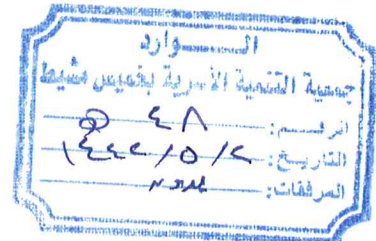 الـــــوارد
جمعية التنمية الأسرية بخميس مشيط
الرقـــم: ٤٨
التاريخ: ٢ / ٥ / ١٤٤٢
المرفقات: